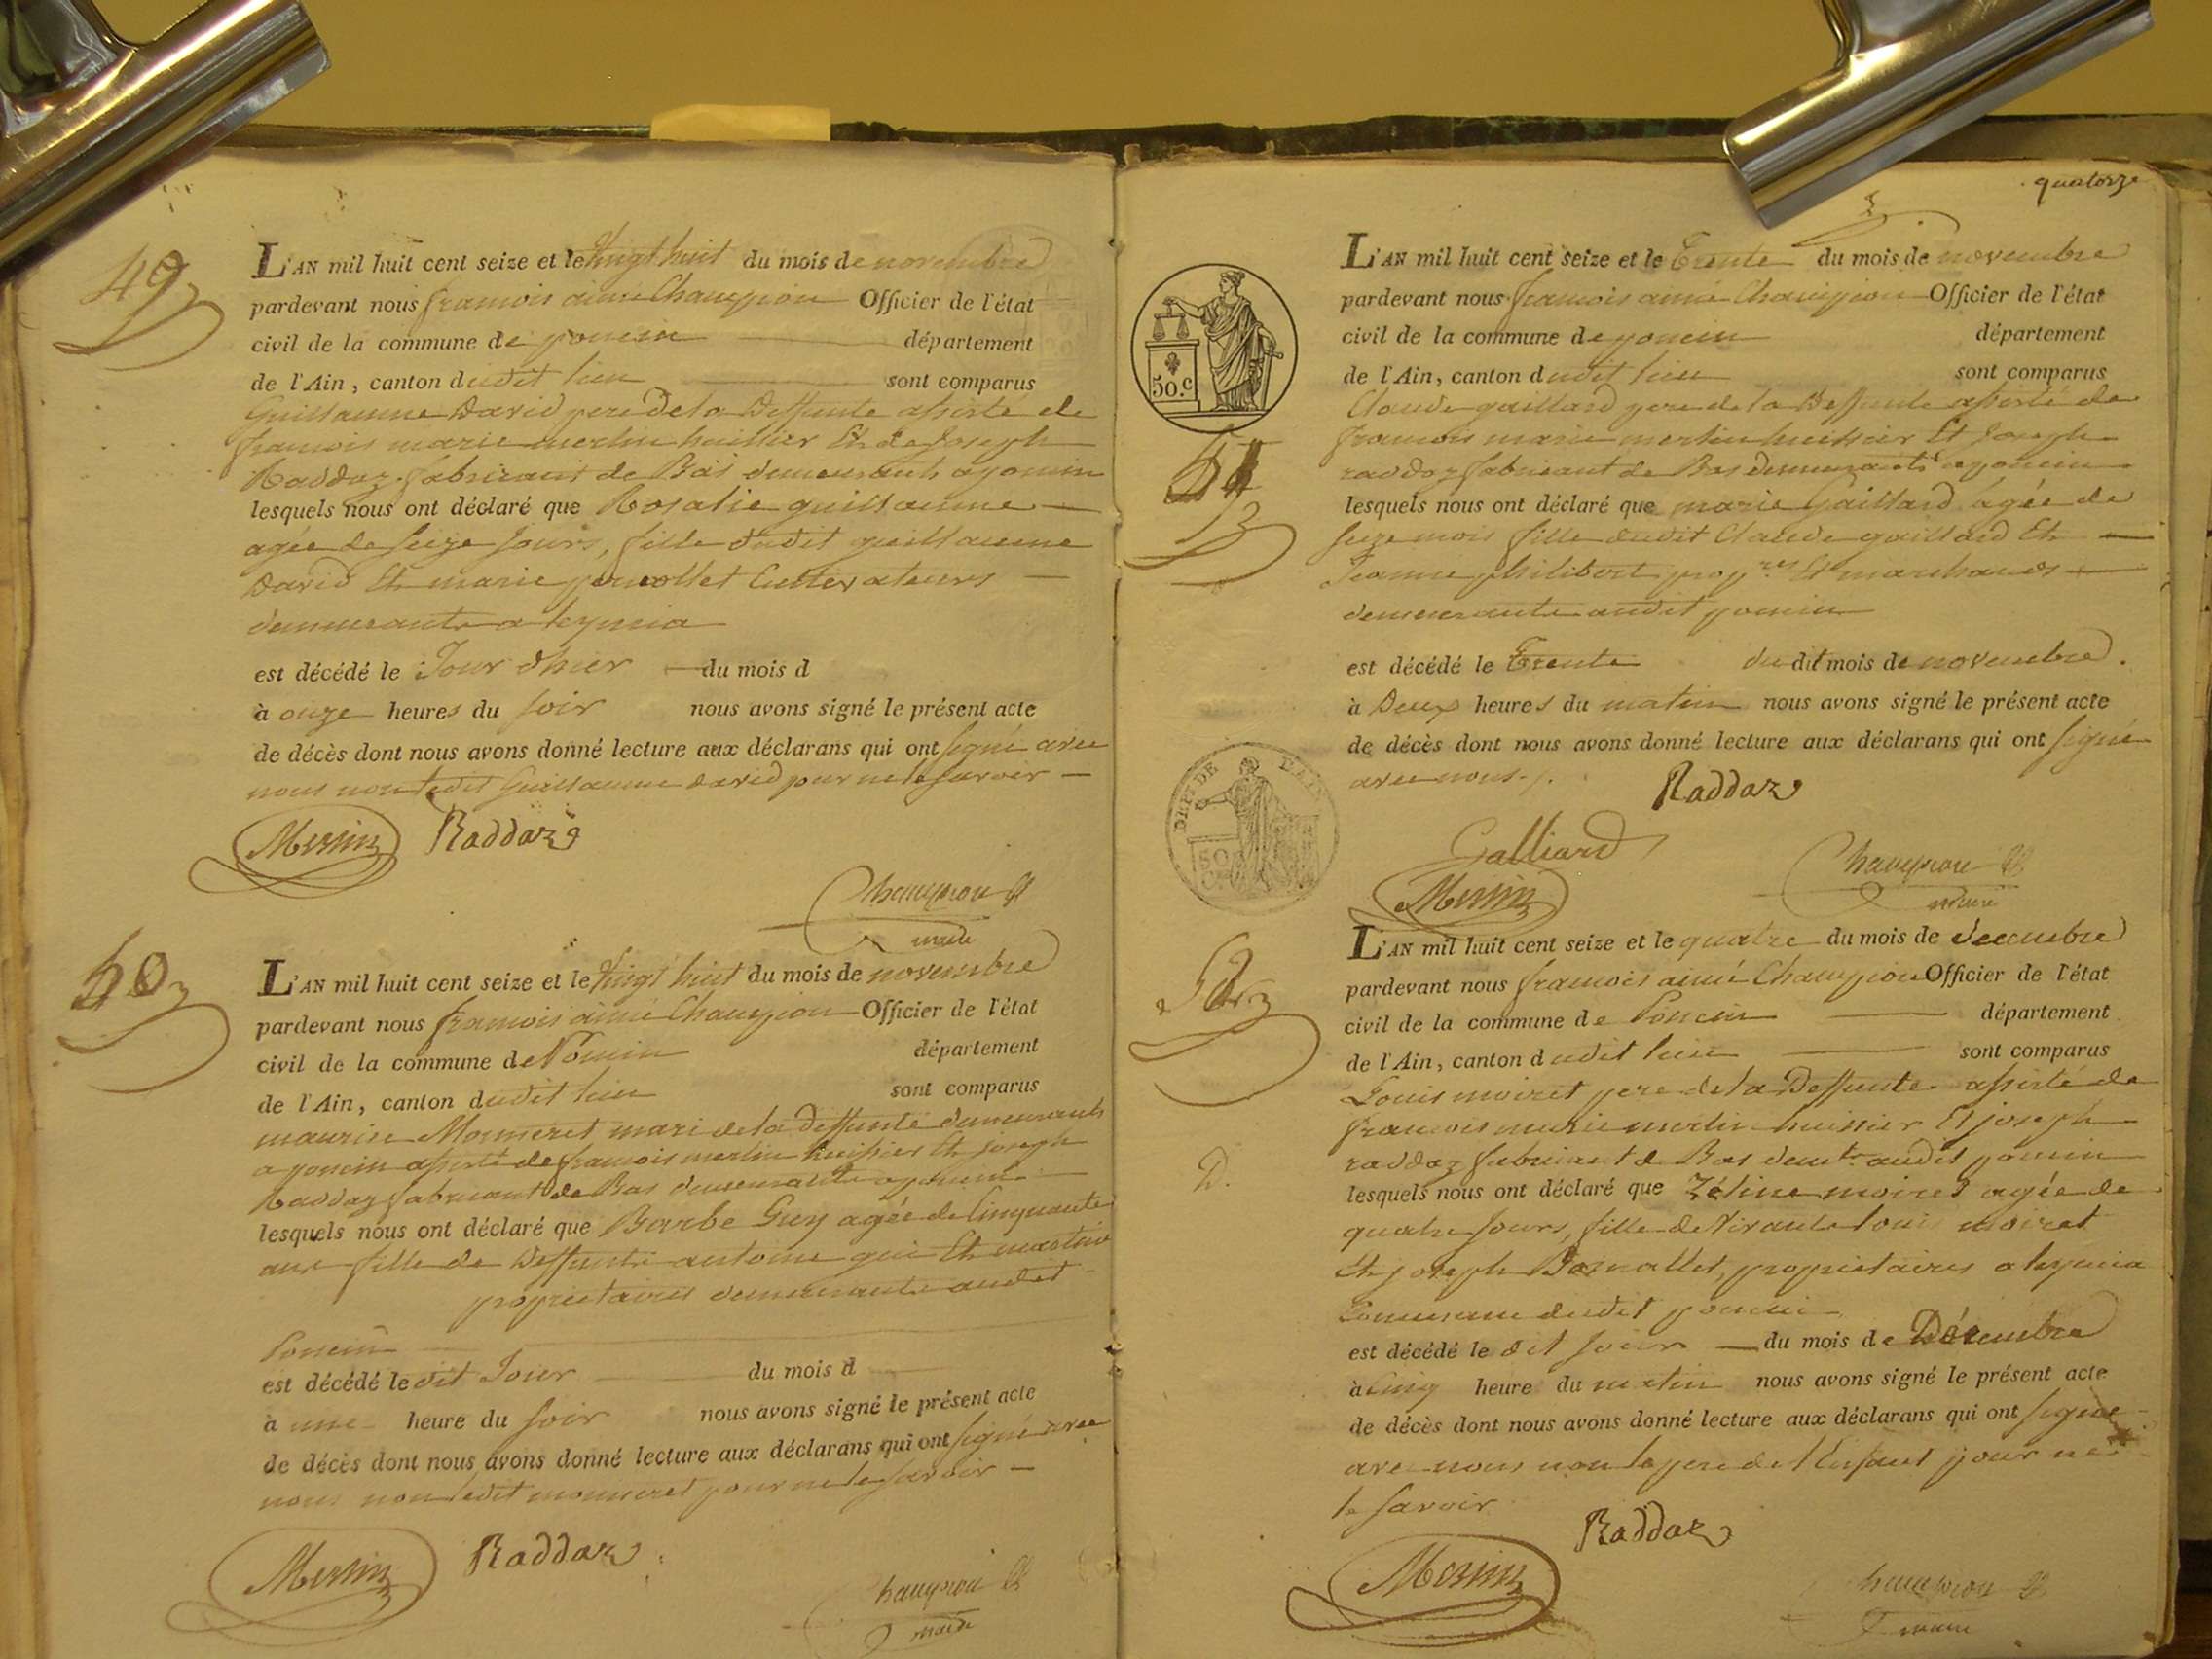 49
L'AN mil huit cent seize et le Vingt huit du mois de novembre
pardevant nous francois aimé Champion Officier de l'état
civil de la commune de poncin département
de l'Ain, canton dudit lieu sont comparus
Guillaume David pere de la Deffunte assisté de
francois marie merlin huissier Et de Joseph
Raddoz fabricant de Bas demeurants a poncin
lesquels nous ont déclaré que Rosalie guillaume
agée de seize Jours, fille dudit guillaume
David Et marie Cultivateurs
demeurants a leymia
est décédé le Jour d'hier du mois d
à onze heures du soir nous avons signé le présent acte
de décès dont nous avons donné lecture aux déclarans qui ont signé avec
nous non ledit Guillaume David pour ne le savoir
Merlin Raddoz
Champion
maire
50
L'AN mil huit cent seize et le Vingt huit du mois de novembre
pardevant nous francois aimé Champion Officier de l'état
civil de la commune de Poncin département
de l'Ain, canton dudit lieu sont comparus
maurice Monneret mari de la deffunte demeurants
a poncin assisté de francois merlin huissier Et joseph
Raddoz fabricant de Bas demeurants a poncin
lesquels nous ont déclaré que Barbe Guy agée de Cinquante
ans fille de Deffunts antoine gui Et
propriétaires demeurants audit
Poncin
est décédé le dit Jour du mois d
à une heure du soir nous avons signé le présent acte
de décès dont nous avons donné lecture aux déclarans qui ont signé avec
nous non ledit monneret pour ne le savoir
Merlin Raddoz
Champion
maire
quatorze
50.c
51
L'AN mil huit cent seize et le Trente du mois de novembre
pardevant nous francois aimé Champion Officier de l'état
civil de la commune de poncin département
de l'Ain, canton dudit lieu sont comparus
Claude gaillard pere de la Deffunte assisté de
francois marie merlin huissier Et Joseph
raddoz fabricant de Bas demeurants a poncin
lesquels nous ont déclaré que marie Gaillard agée de
seize mois fille dudit Claude gaillard Et
Jeanne philibert prop.res Et marchands
demeurants audit poncin
est décédé le Trente du dit mois de novembre.
à Deux heures du matin nous avons signé le présent acte
de décès dont nous avons donné lecture aux déclarans qui ont signé
avec nous.
DEPT DE L'AIN
50
Raddoz
Galliard
Merlin
Champion
maire
52
L'AN mil huit cent seize et le quatre du mois de décembre
pardevant nous francois aimé Champion Officier de l'état
civil de la commune de Poncin département
de l'Ain, canton dudit lieu sont comparus
Louis moiret pere de la Deffunte assisté de
francois marie merlin huissier Et joseph
raddoz fabricant de Bas demts audit poncin
D.
lesquels nous ont déclaré que Zéline moiret agée de
quatre Jours, fille de Vivants louis moiret
Et joseph propriétaires a leymia
Commune dudit poncin
est décédé le dit jour du mois de Décembre
à Cinq heure du matin nous avons signé le présent acte
de décès dont nous avons donné lecture aux déclarans qui ont signé
avec nous non le pere de l'Enfant pour ne
le savoir
Raddoz
Merlin
Champion
maire